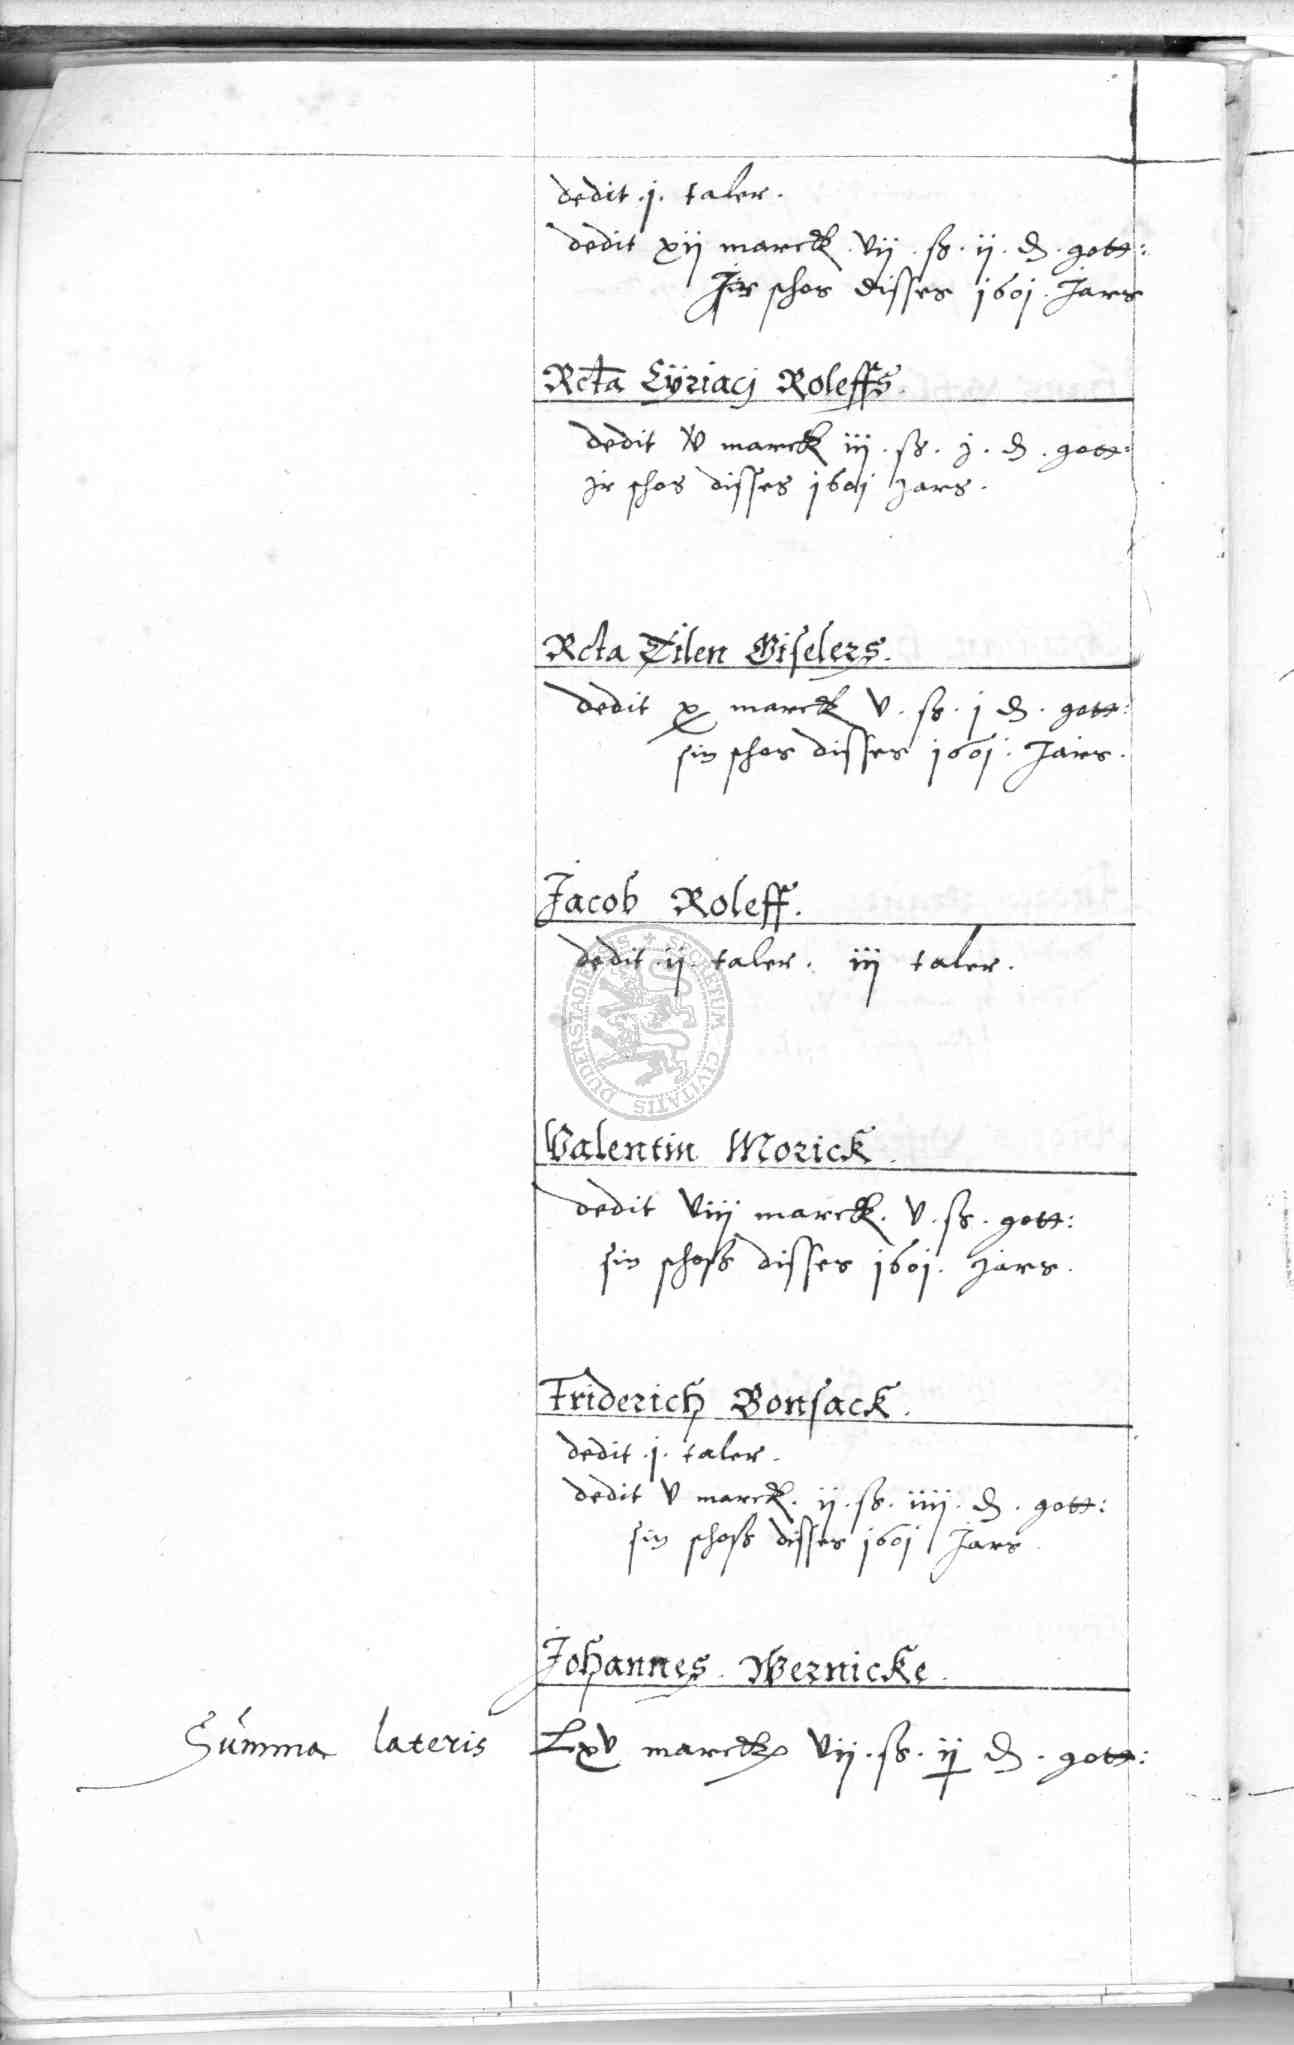 dedit .j. taler.
dedit xij marck vij . ß . ij . ₰ . gott:
Jr schos disses 1601. Jars
Rcta Cÿriacj Roleffs.
dedit v marck iij . ß . j . ₰ . gott:
jr schos disses 1601 jars.
Rcta Tilen Giselers.
dedit x marck v . ß . j ₰ . gott:
sin schos disses 1601. Jars.
Jacob Roleff.
dedit .ij. taler. iij taler.
SECRETUM CIVITATIS DUDERSTADIENSIS
Valentin Morick.
dedit viij marck. v . ß . gott:
sin schoß disses 1601. jars.
Friderich Bonsack.
dedit .j. taler.
dedit v marck. ij . ß . iiij . ₰ . gott:
sin schoß disses 1601 Jars
Johannes. Wernicke.
Summa lateris Lxv marck vij . ß . ij ₰ . gott: